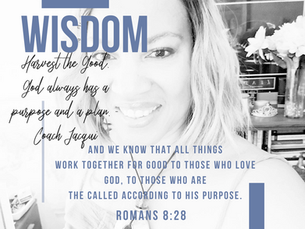 WISDOM
Harvest the Good
God always has a
purpose and a plan
Coach Jacqui
AND WE KNOW THAT ALL THINGS
WORK TOGETHER FOR GOOD TO THOSE WHO LOVE
GOD, TO THOSE WHO ARE
THE CALLED ACCORDING TO HIS PURPOSE.
ROMANS 8:28